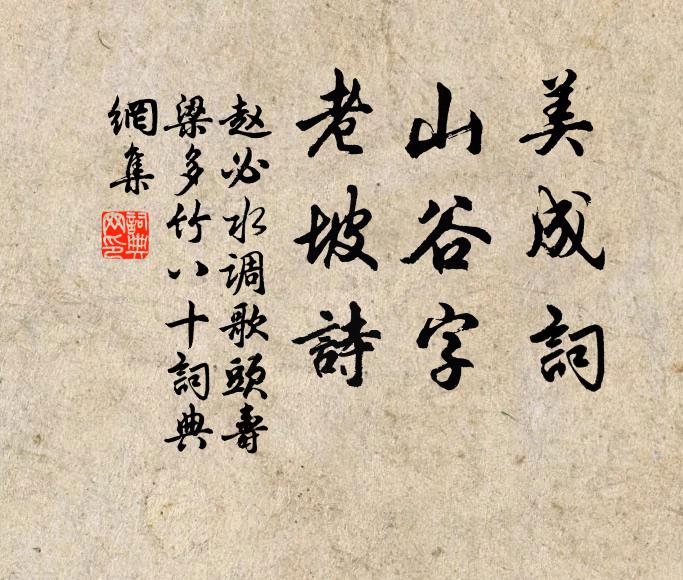 美成詞
山谷字
老坡詩
赵必水调歌頭壽
梁多竹八十詞典
網集
詞典
网印